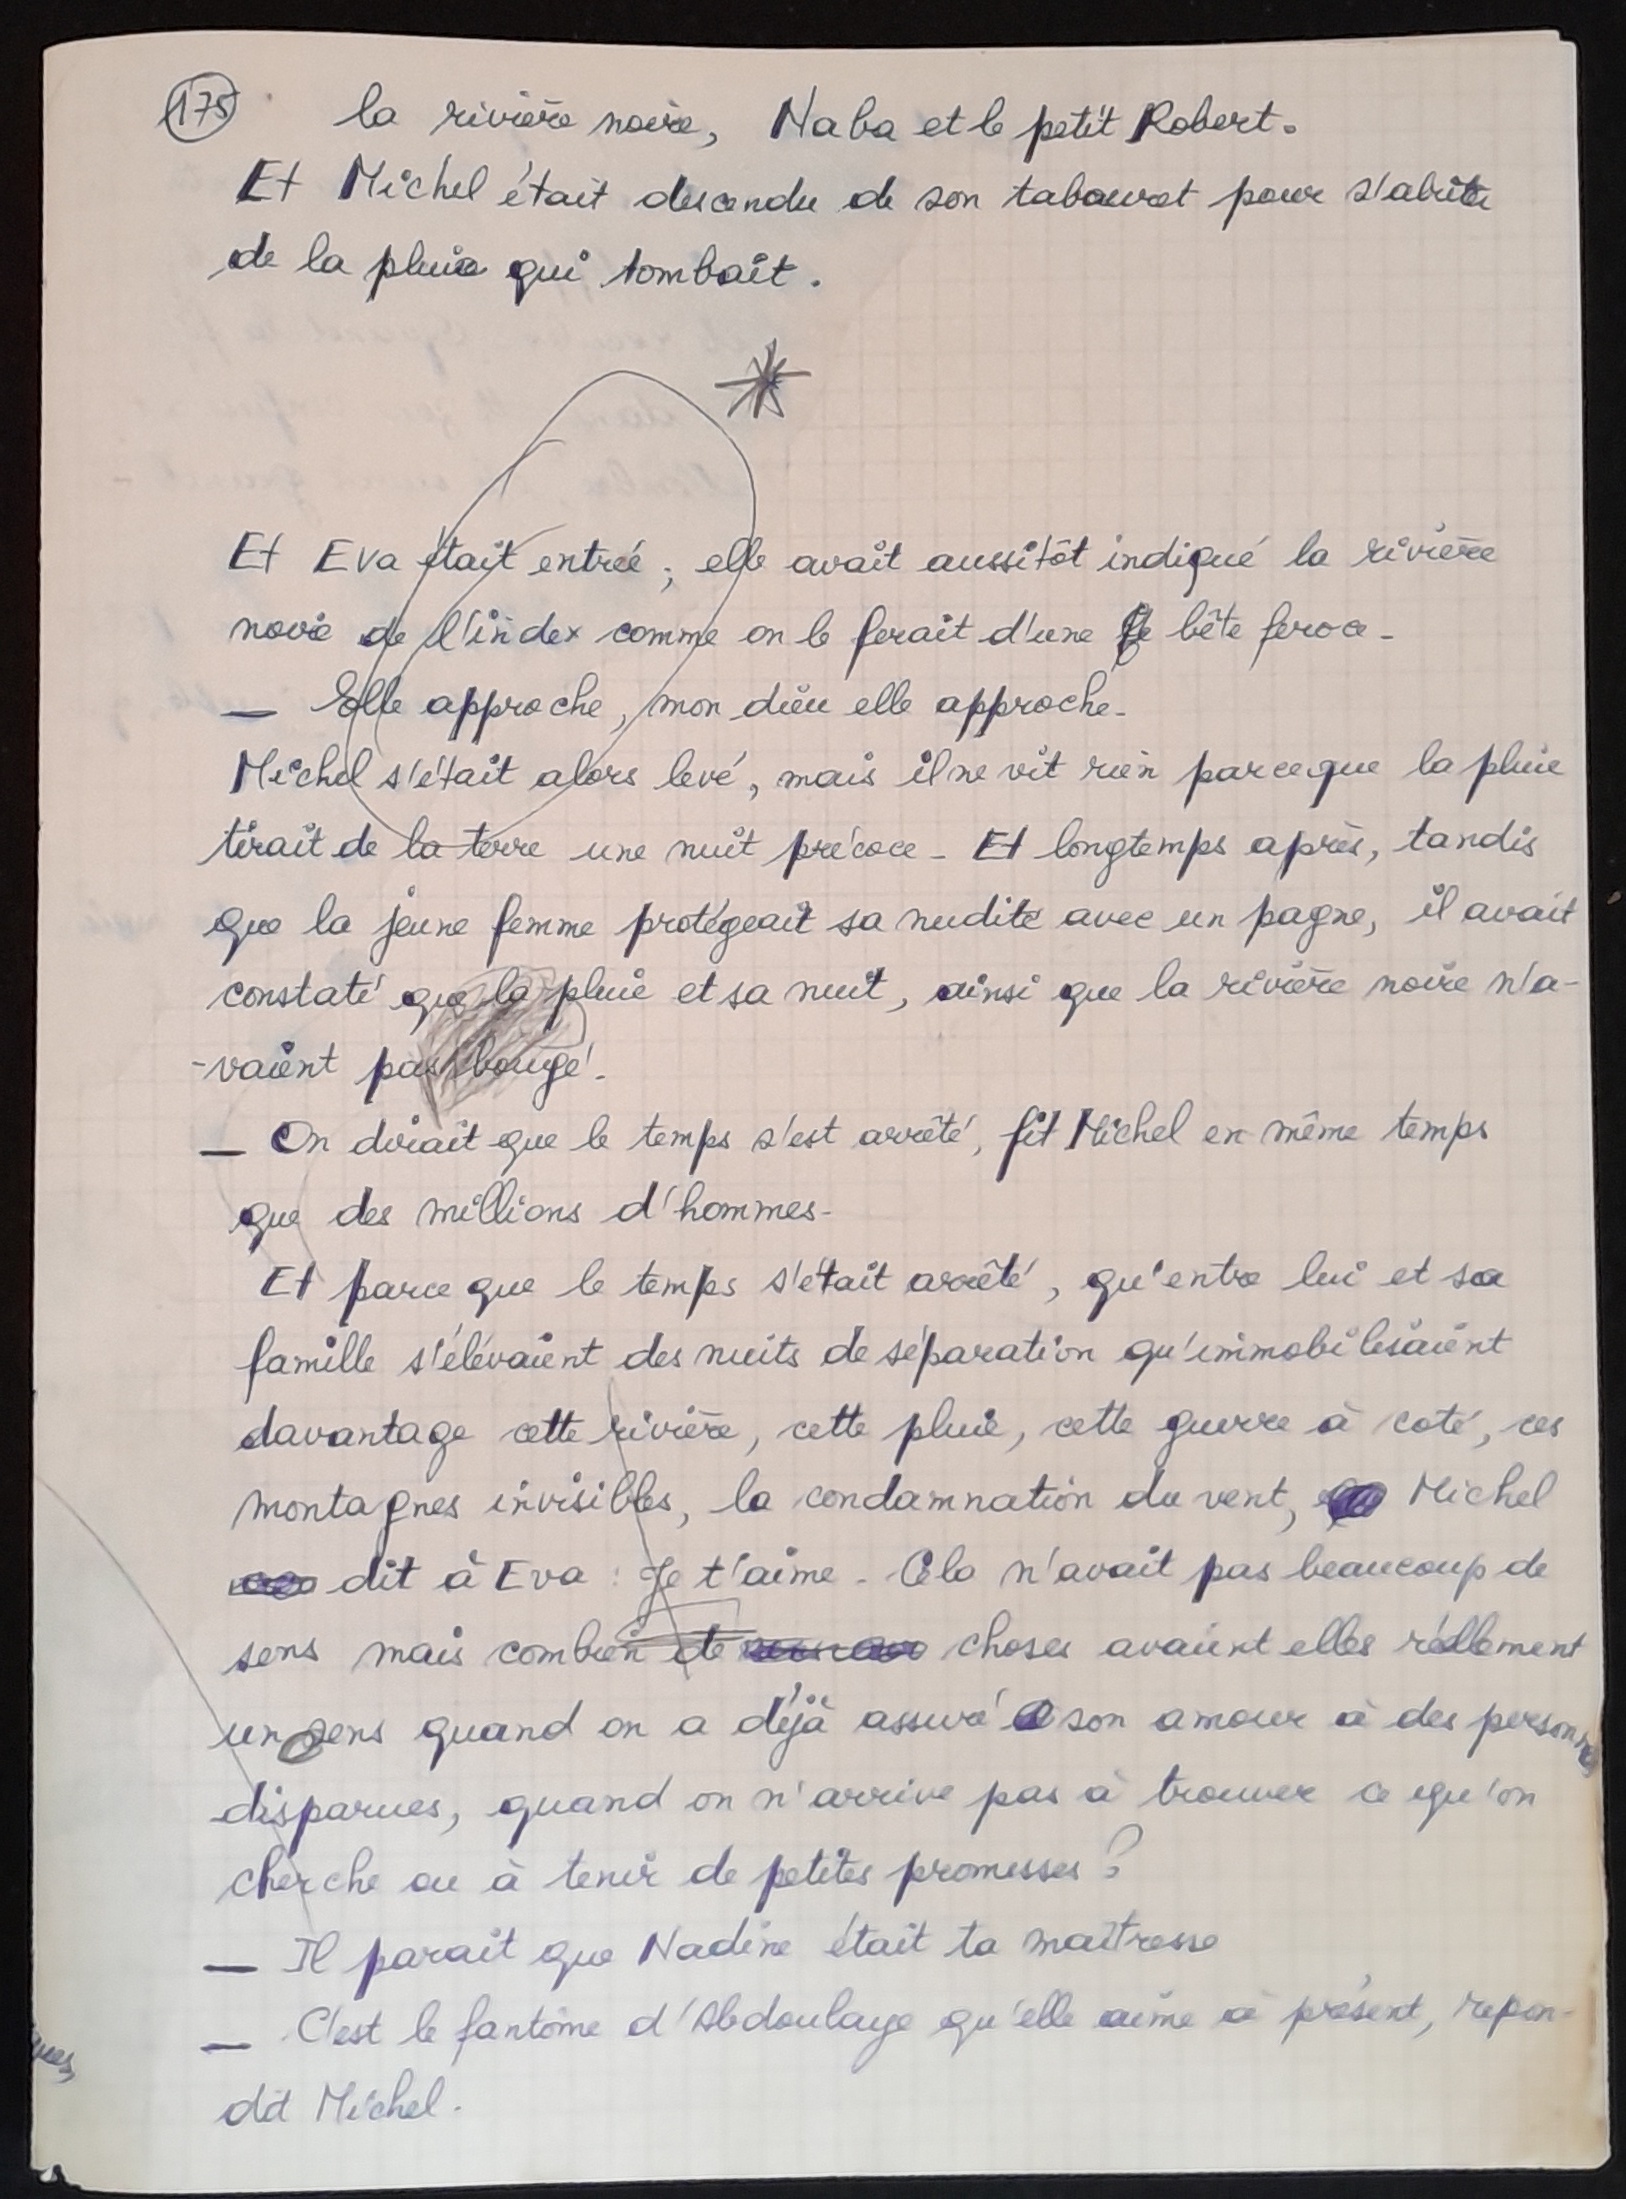 175 la rivière noire, Naba et le petit Robert.
Et Michel était descendu de son tabouret pour s'abriter
de la pluie qui tombait.
*
Et Eva était entrée ; elle avait aussitôt indiqué la rivière
noire de l'index comme on le ferait d'une bête feroce -
— Elle approche, mon dieu elle approche -
Michel s'était alors levé, mais il ne vit rien parceque la pluie
tirait de la terre une nuit précoce - Et longtemps après, tandis
que la jeune femme protégeait sa nudité avec un pagne, il avait
constaté que la pluie et sa nuit, ainsi que la rivière noire n'a-
-vaient pas bougé -
— On dirait que le temps s'est arrêté, fit Michel en même temps
que des millions d'hommes -
Et parce que le temps s'était arrêté, qu'entre lui et sa
famille s'élévaient des nuits de séparation qu'immobilisaient
davantage cette rivière, cette pluie, cette guerre à coté, ces
montagnes invisibles, la condamnation du vent, Michel
dit à Eva : Je t'aime - Cela n'avait pas beaucoup de
sens mais combien de choses avaient elles réellement
un sens quand on a déjà assuré son amour à des personnes
disparues, quand on n'arrive pas à trouver ce qu'on
cherche ou à tenir de petites promesses ?
— Il parait que Nadine était ta maîtresse
— C'est le fantôme d'Abdoulaye qu'elle aime à présent, repon-
dit Michel.
ques,